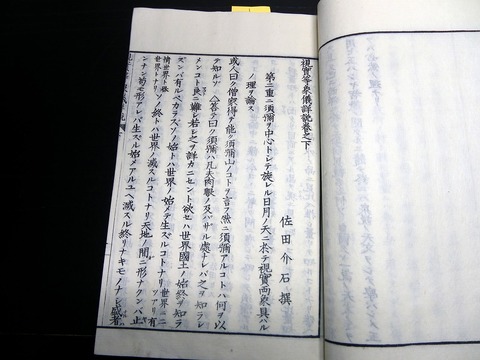 視實等象儀詳説巻之下
佐田介石撰
第二重ニ須彌ヲ中心トシテ旋レル日月ノ天ニ於テ視實両象具ハル
ノ理ヲ論ス
或人曰ク僧家揚々能ク須彌山ノコトヲ言フ然ニ須彌アルコトハ何ヲ以
テ知ルゾ 答テ曰ク須彌ハ凡夫肉眼ノ及バザル處ナレバ之ヲ知ラシ
メンコト良ニ難シ若シ之ヲ詳カニセント欲セハ世界國土ノ始終ヲ知ラ
ズンバ有ルベカラズソノ始トハ世界ノ始メテ生ズルコトナリ
ソノ終トハ世界ノ滅スルコトナリ天地ノ間ニ形ナクンバ止
ンナン苟モ形アレバ生ズル始メアルユヘ滅スル終リナキモノナシ